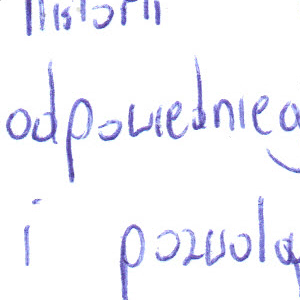 historii
odpowiednieg
i pozwolą